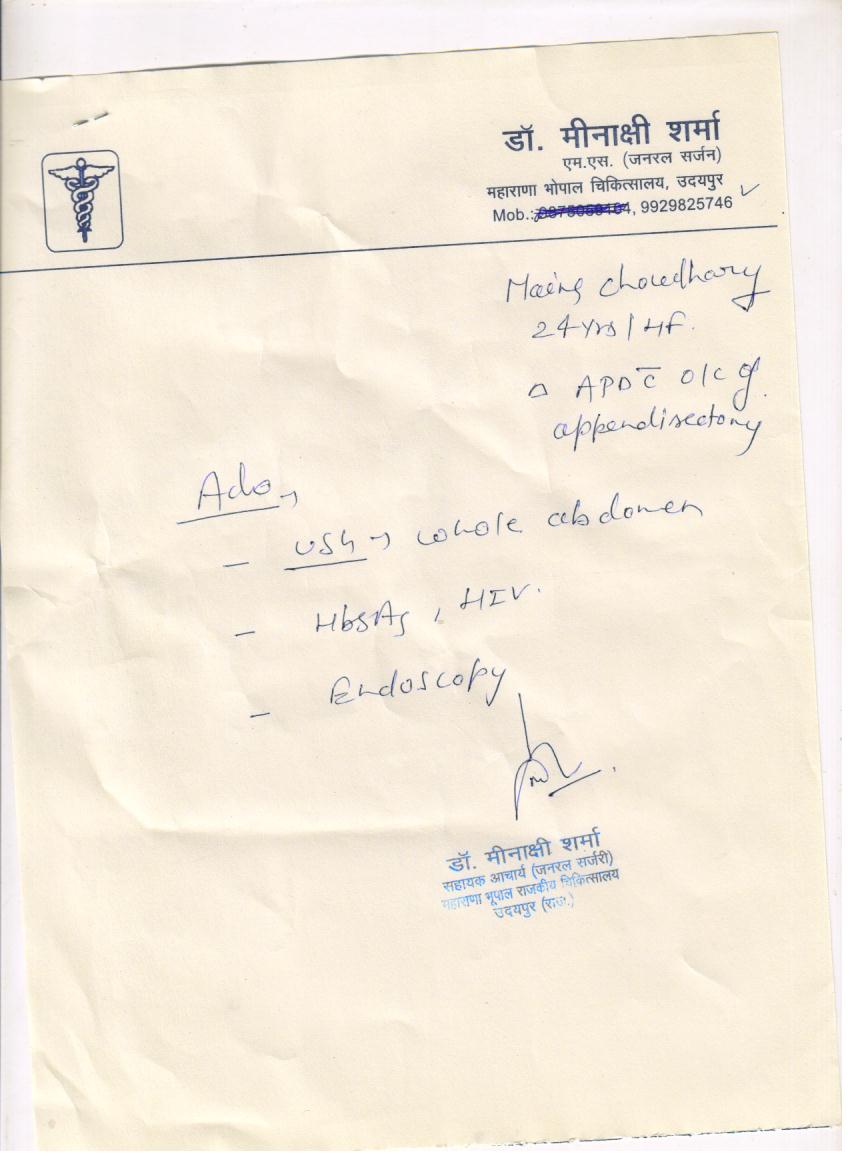 डॉ. मीनाक्षी शर्मा
एम.एस. (जनरल सर्जन)
महाराणा भोपाल चिकित्सालय, उदयपुर
Mob.: 9929825746
choudhary
24 yrs / HF.
Δ APD c̄ O/C of
appendisectomy
Ado →
- USG → whole abdomen
- HbsAg, HIV.
- Endoscopy
डॉ. मीनाक्षी शर्मा
सहायक आचार्य (जनरल सर्जरी)
महाराणा भूपाल राजकीय चिकित्सालय
उदयपुर (राज.)